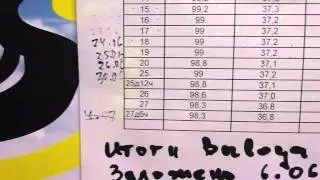 15 99,2 37,3
16 99 37,2
17 99 37,2
18 99 37,2
19 99 37,2
20 98,8 37,1
25д12ч 98,8 37,2
26 98,6 37,0
27 98,3 36,8
27д6ч 98,3 36,8
24.06
25.06
26.06
30.06
Итоги вывода
Заложено 6.06